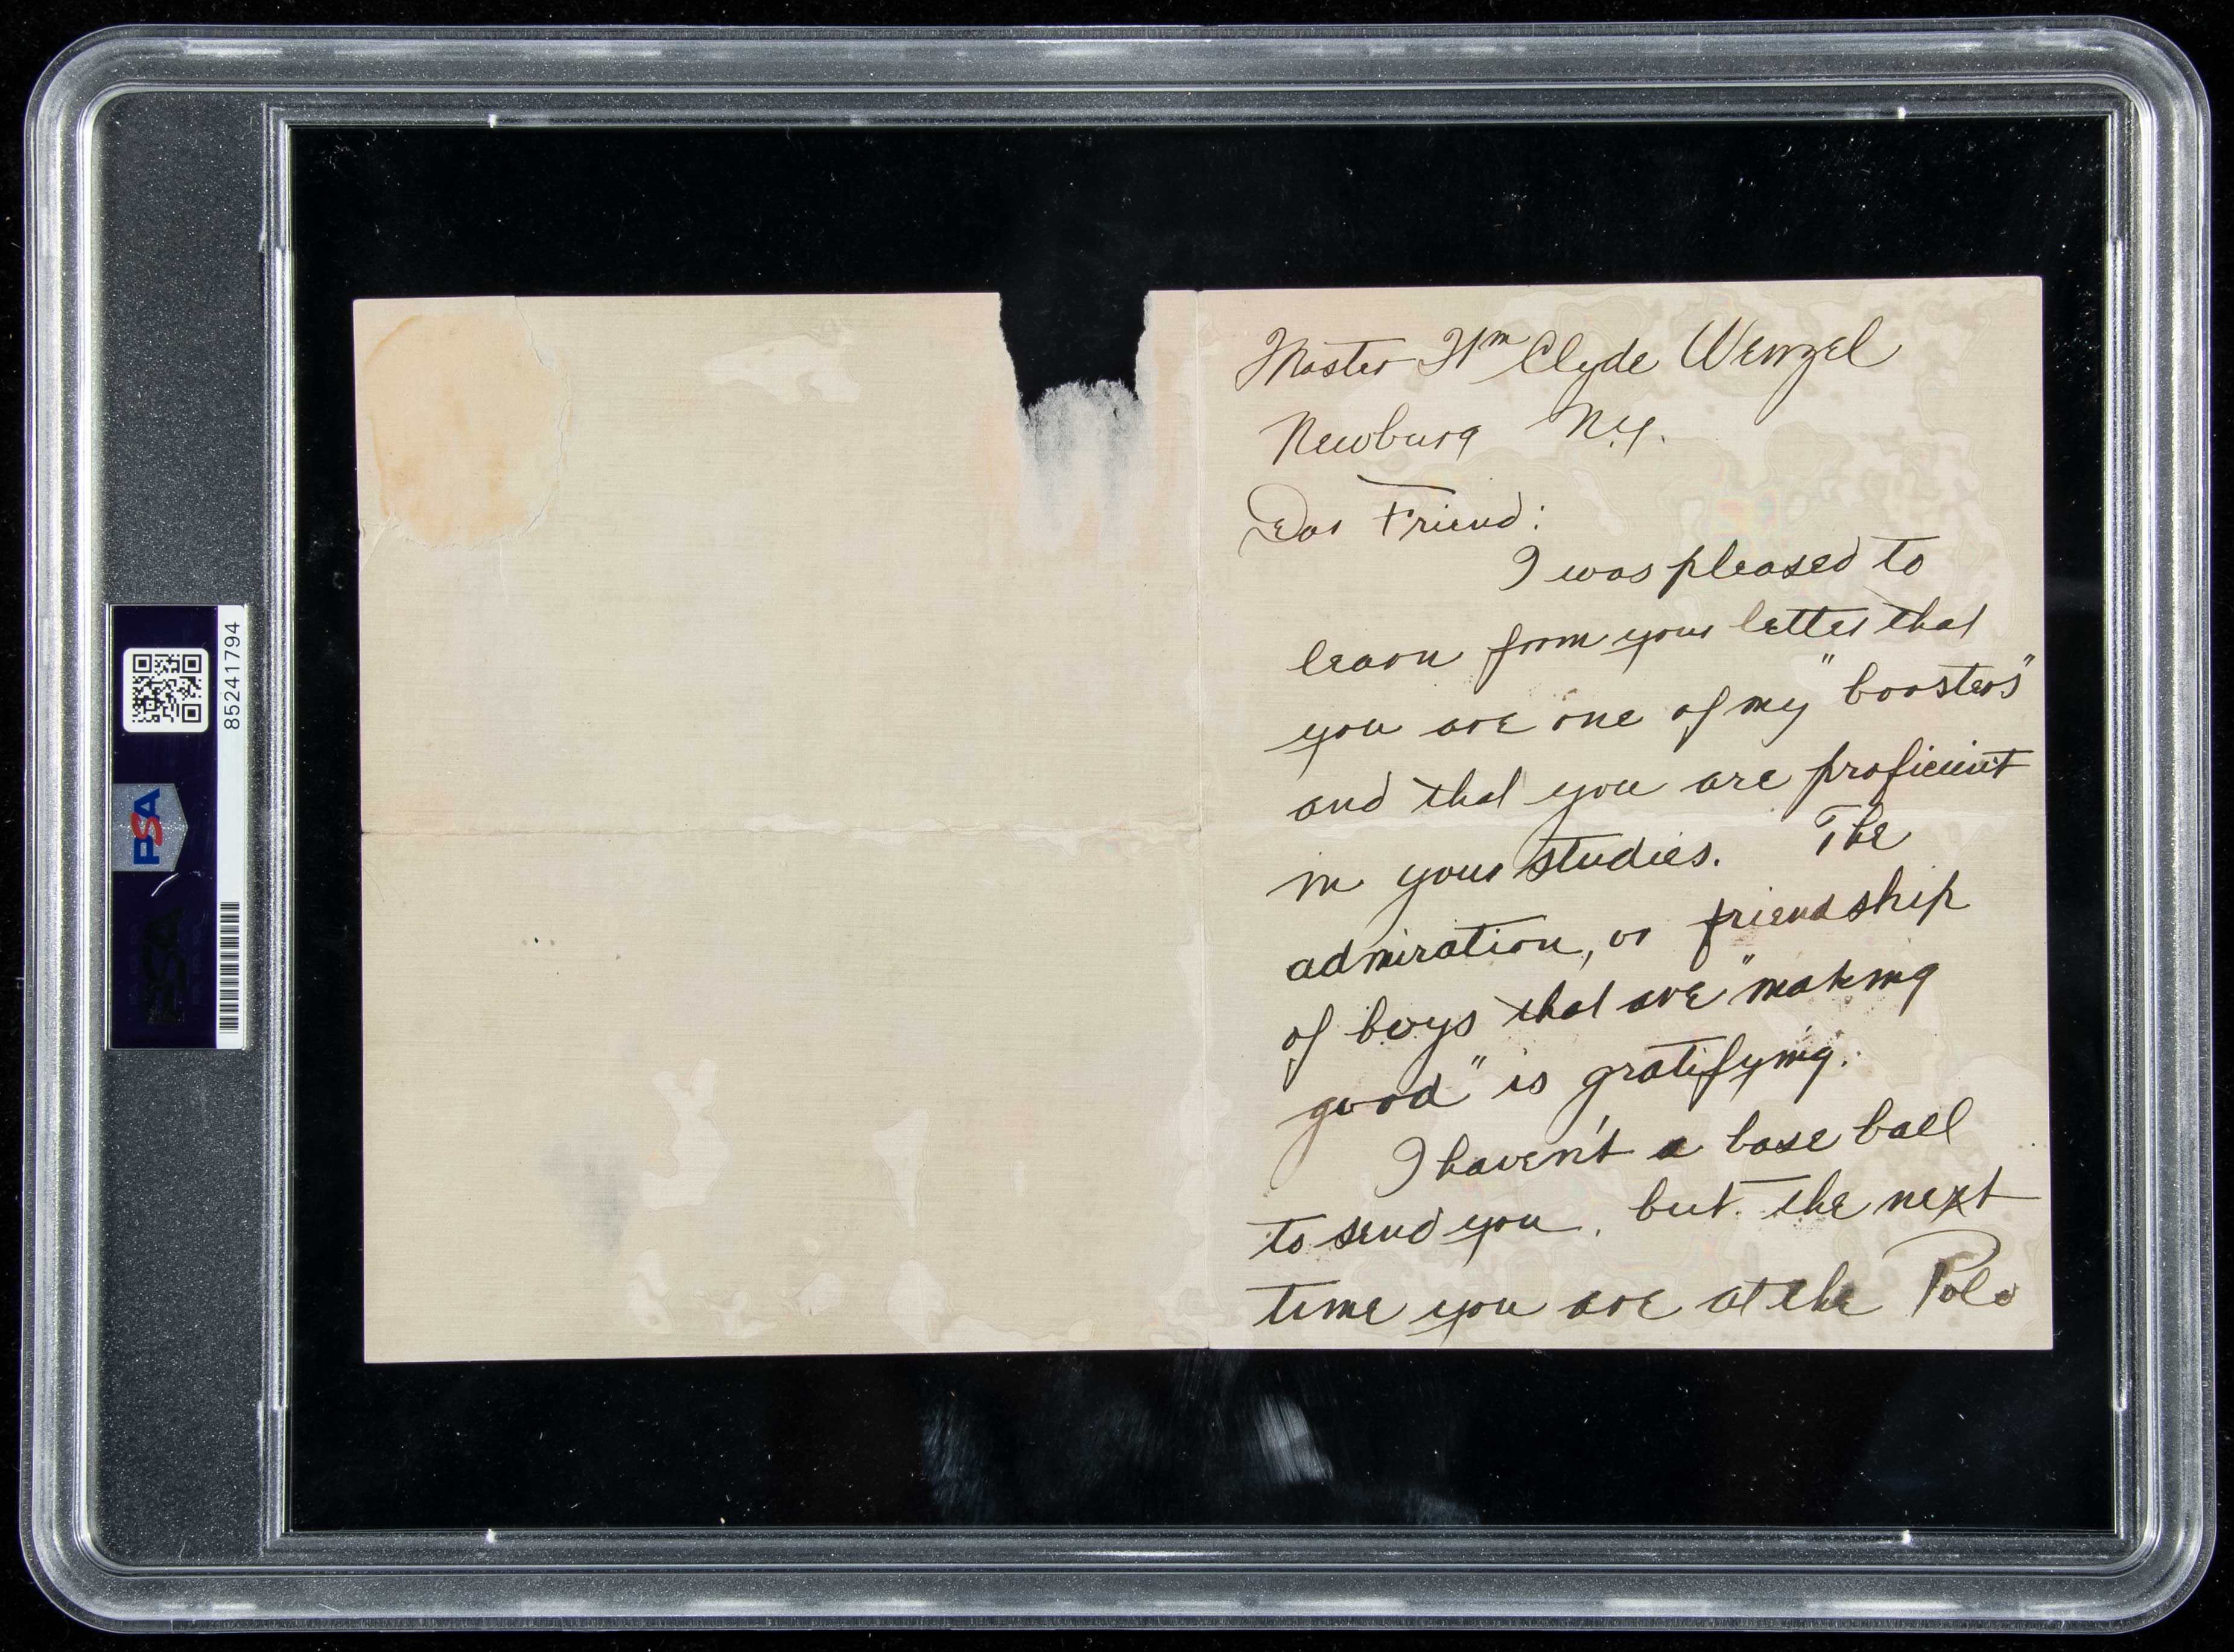 PSA
85241794
Master Wm Clyde Wenzel
Newburg N.Y.
Dear Friend:
I was pleased to
learn from your letter that
you are one of my "boosters"
and that you are proficient
in your studies. The
admiration, or friendship
of boys that are "making
good" is gratifying.
I haven't a base ball
to send you, but the next
time you are at the Polo